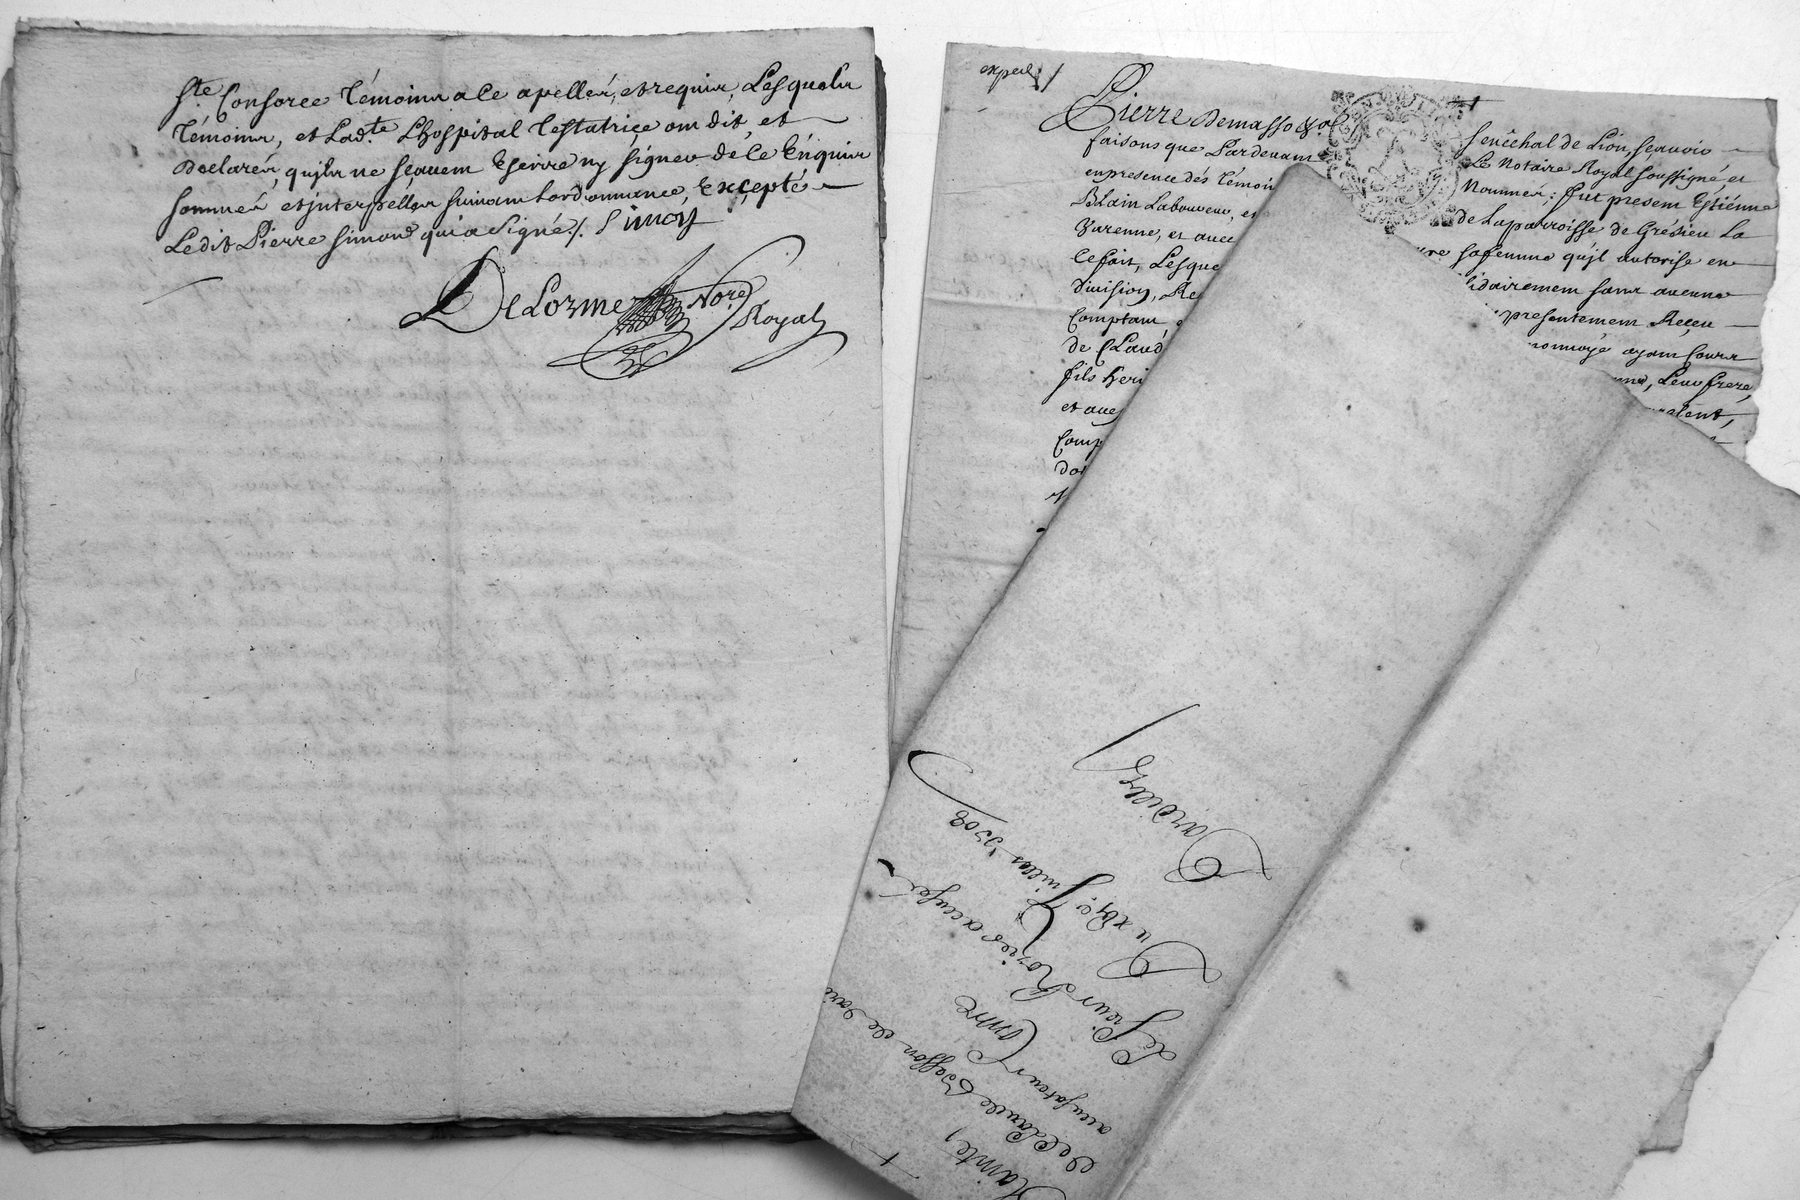 Ste Consorce Témoins a ce apellés, et requis, Lesquels
Témoins, et Ladte Lhospital Testatrice ont dit, et
Declarés, quils ne sçavent Escrire ny signer de ce Enquis
sommés, et interpellés suivant Lordonnance, Excepté
Ledit Pierre Simond qui a signé /. Simon
DeLorme Nore
Royal
exped /
Pierre Demasso
faisons que Pardevant
en presence dés Témoin
Blain Laboureur, et
Varenne, et avec
Ce fait, Lesque
Division, Re
Comptant,
de Claud
fils heri
et avec
Comp
Senêchal de Lion, sçavoir
Le Notaire Royal soussigné, et
Nommés; fut present Estiénne
de La parroisse de Grésieu La
sa femme qu'il autorise en
lidairement sans aucune
presentement Reçeu
monnoye ayant Cours
Leur frere,
Plainte,
De Claude Besson
accusateur Contre
Le Sieur Rozier accusé
Du Juillet 1708
Tardieu